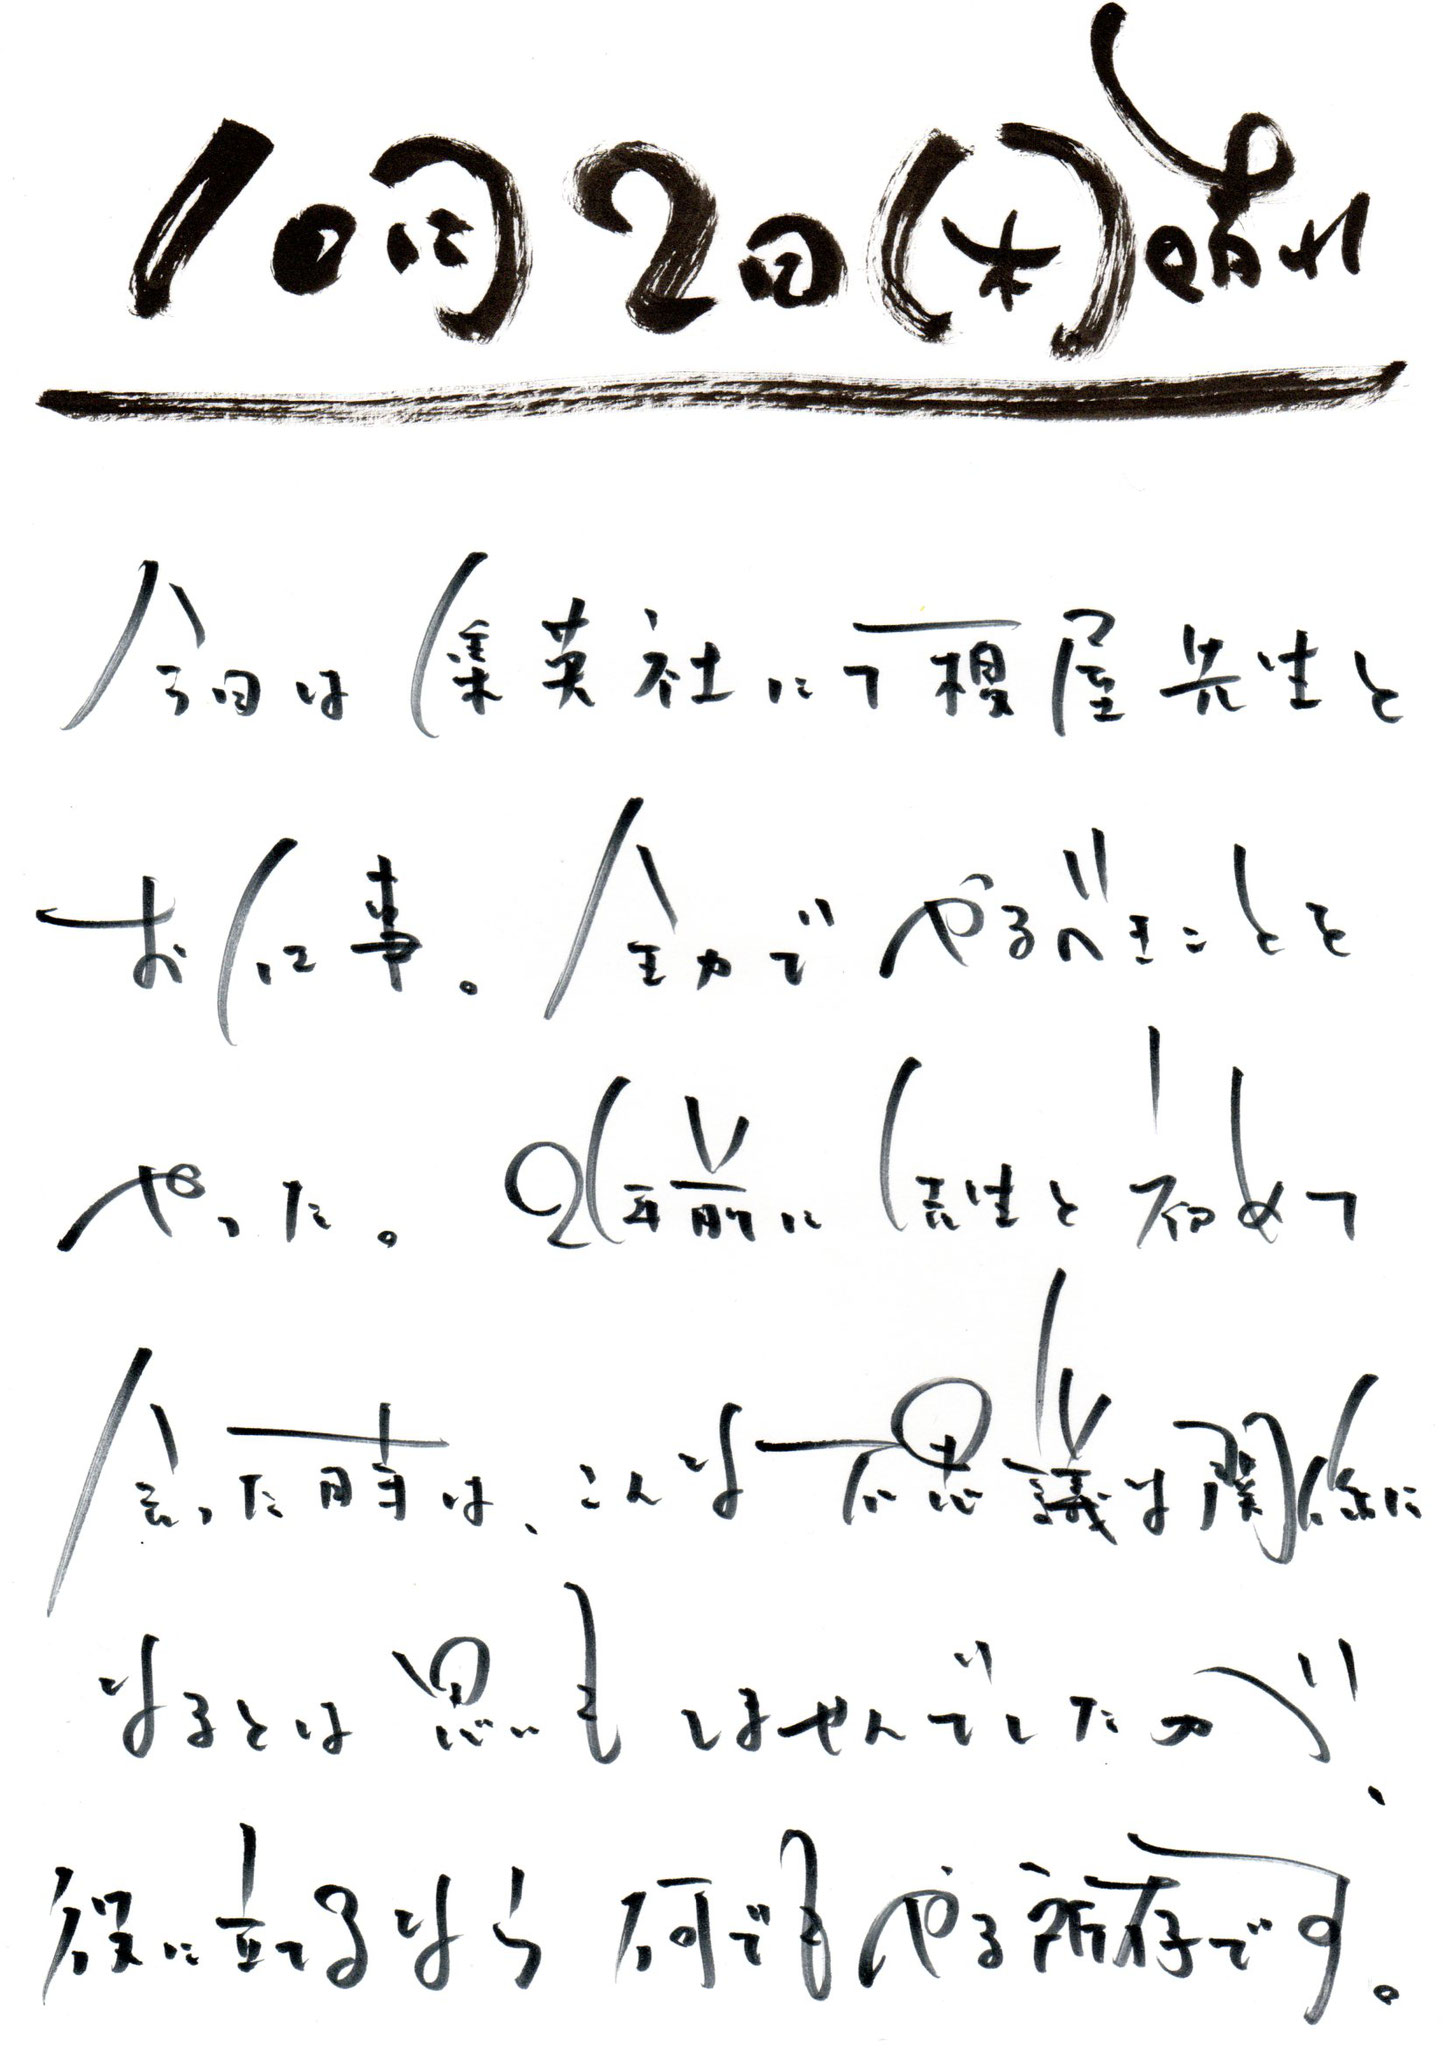 10月2日(木)晴れ
今日は集英社にて榎屋先生と
お仕事。全力でやるべきことを
やった。2年前に先生と初めて
会った時は、こんな不思議な関係に
なるとは思いもしませんでしたが、
役に立てるなら何でもやる所存です。